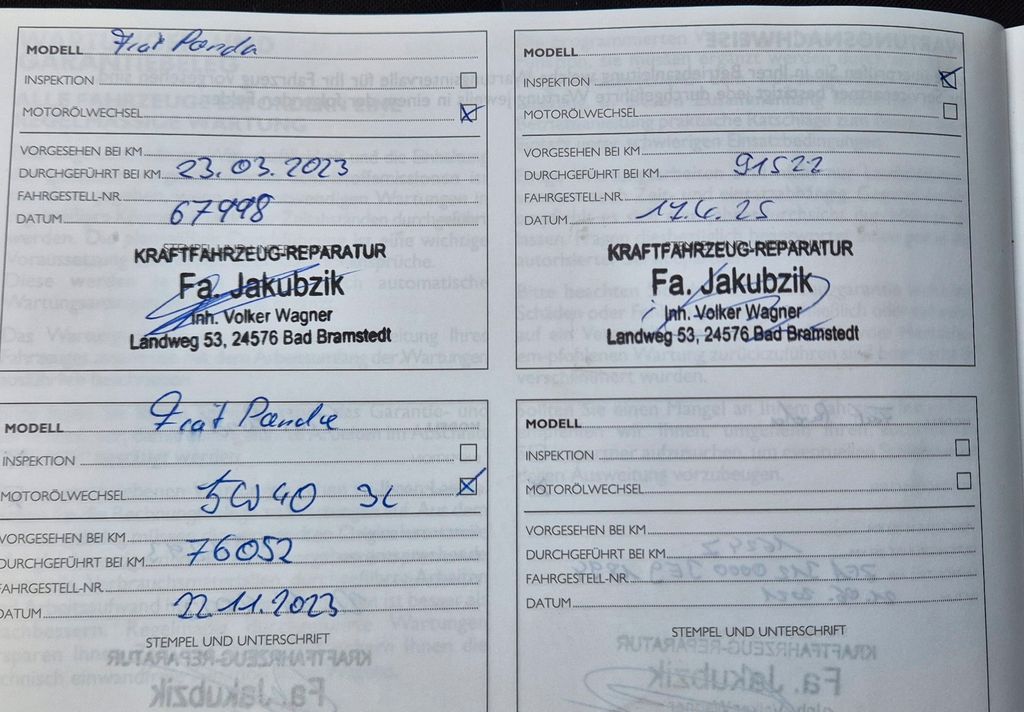 MODELL Fiat Panda
INSPEKTION
MOTORÖLWECHSEL
VORGESEHEN BEI KM
DURCHGEFÜHRT BEI KM 23.03.2023
FAHRGESTELL-NR.
DATUM 67998
STEMPEL UND UNTERSCHRIFT
KRAFTFAHRZEUG-REPARATUR
Fa. Jakubzik
Inh. Volker Wagner
Landweg 53, 24576 Bad Bramstedt
MODELL
INSPEKTION
MOTORÖLWECHSEL
VORGESEHEN BEI KM
DURCHGEFÜHRT BEI KM 91522
FAHRGESTELL-NR.
DATUM 17.4.25
KRAFTFAHRZEUG-REPARATUR
Fa. Jakubzik
Inh. Volker Wagner
Landweg 53, 24576 Bad Bramstedt
MODELL Fiat Panda
INSPEKTION
MOTORÖLWECHSEL 5W40 3L
VORGESEHEN BEI KM
DURCHGEFÜHRT BEI KM 76052
FAHRGESTELL-NR.
DATUM 22.11.2023
STEMPEL UND UNTERSCHRIFT
MODELL
INSPEKTION
MOTORÖLWECHSEL
VORGESEHEN BEI KM
DURCHGEFÜHRT BEI KM
FAHRGESTELL-NR.
DATUM
STEMPEL UND UNTERSCHRIFT